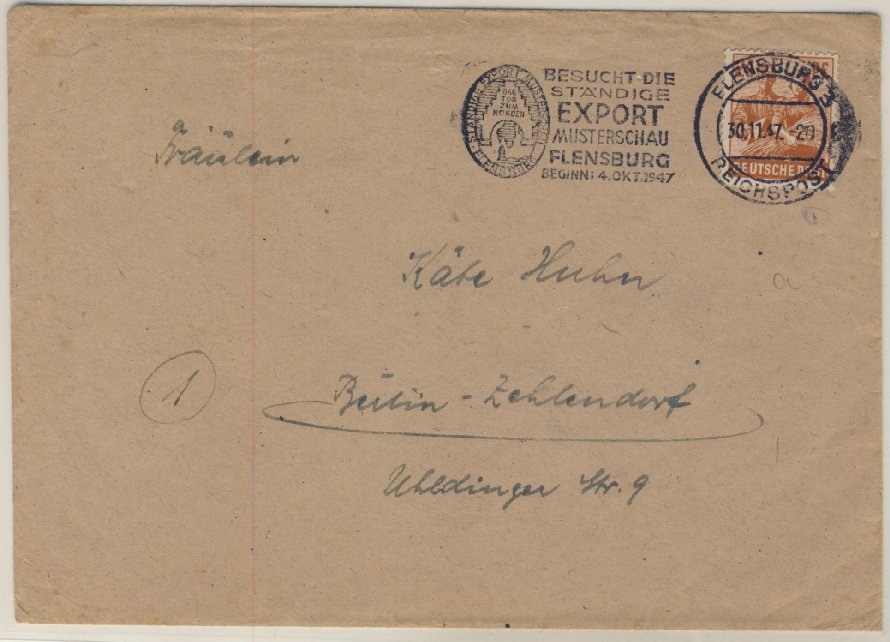 STÄNDIGE EXPORT MUSTERSCHAU
DAS
TOR
ZUM
NORDEN
FLENSBURG
BESUCHT DIE
STÄNDIGE
EXPORT
MUSTERSCHAU
FLENSBURG
BEGINN: 4. OKT. 1947
FLENSBURG 3
30.11.47.-20
REICHSPOST
DEUTSCHE POST
Fräulein
Käte Huhn
a
1
Berlin - Zehlendorf
Uhldinger Str. 9